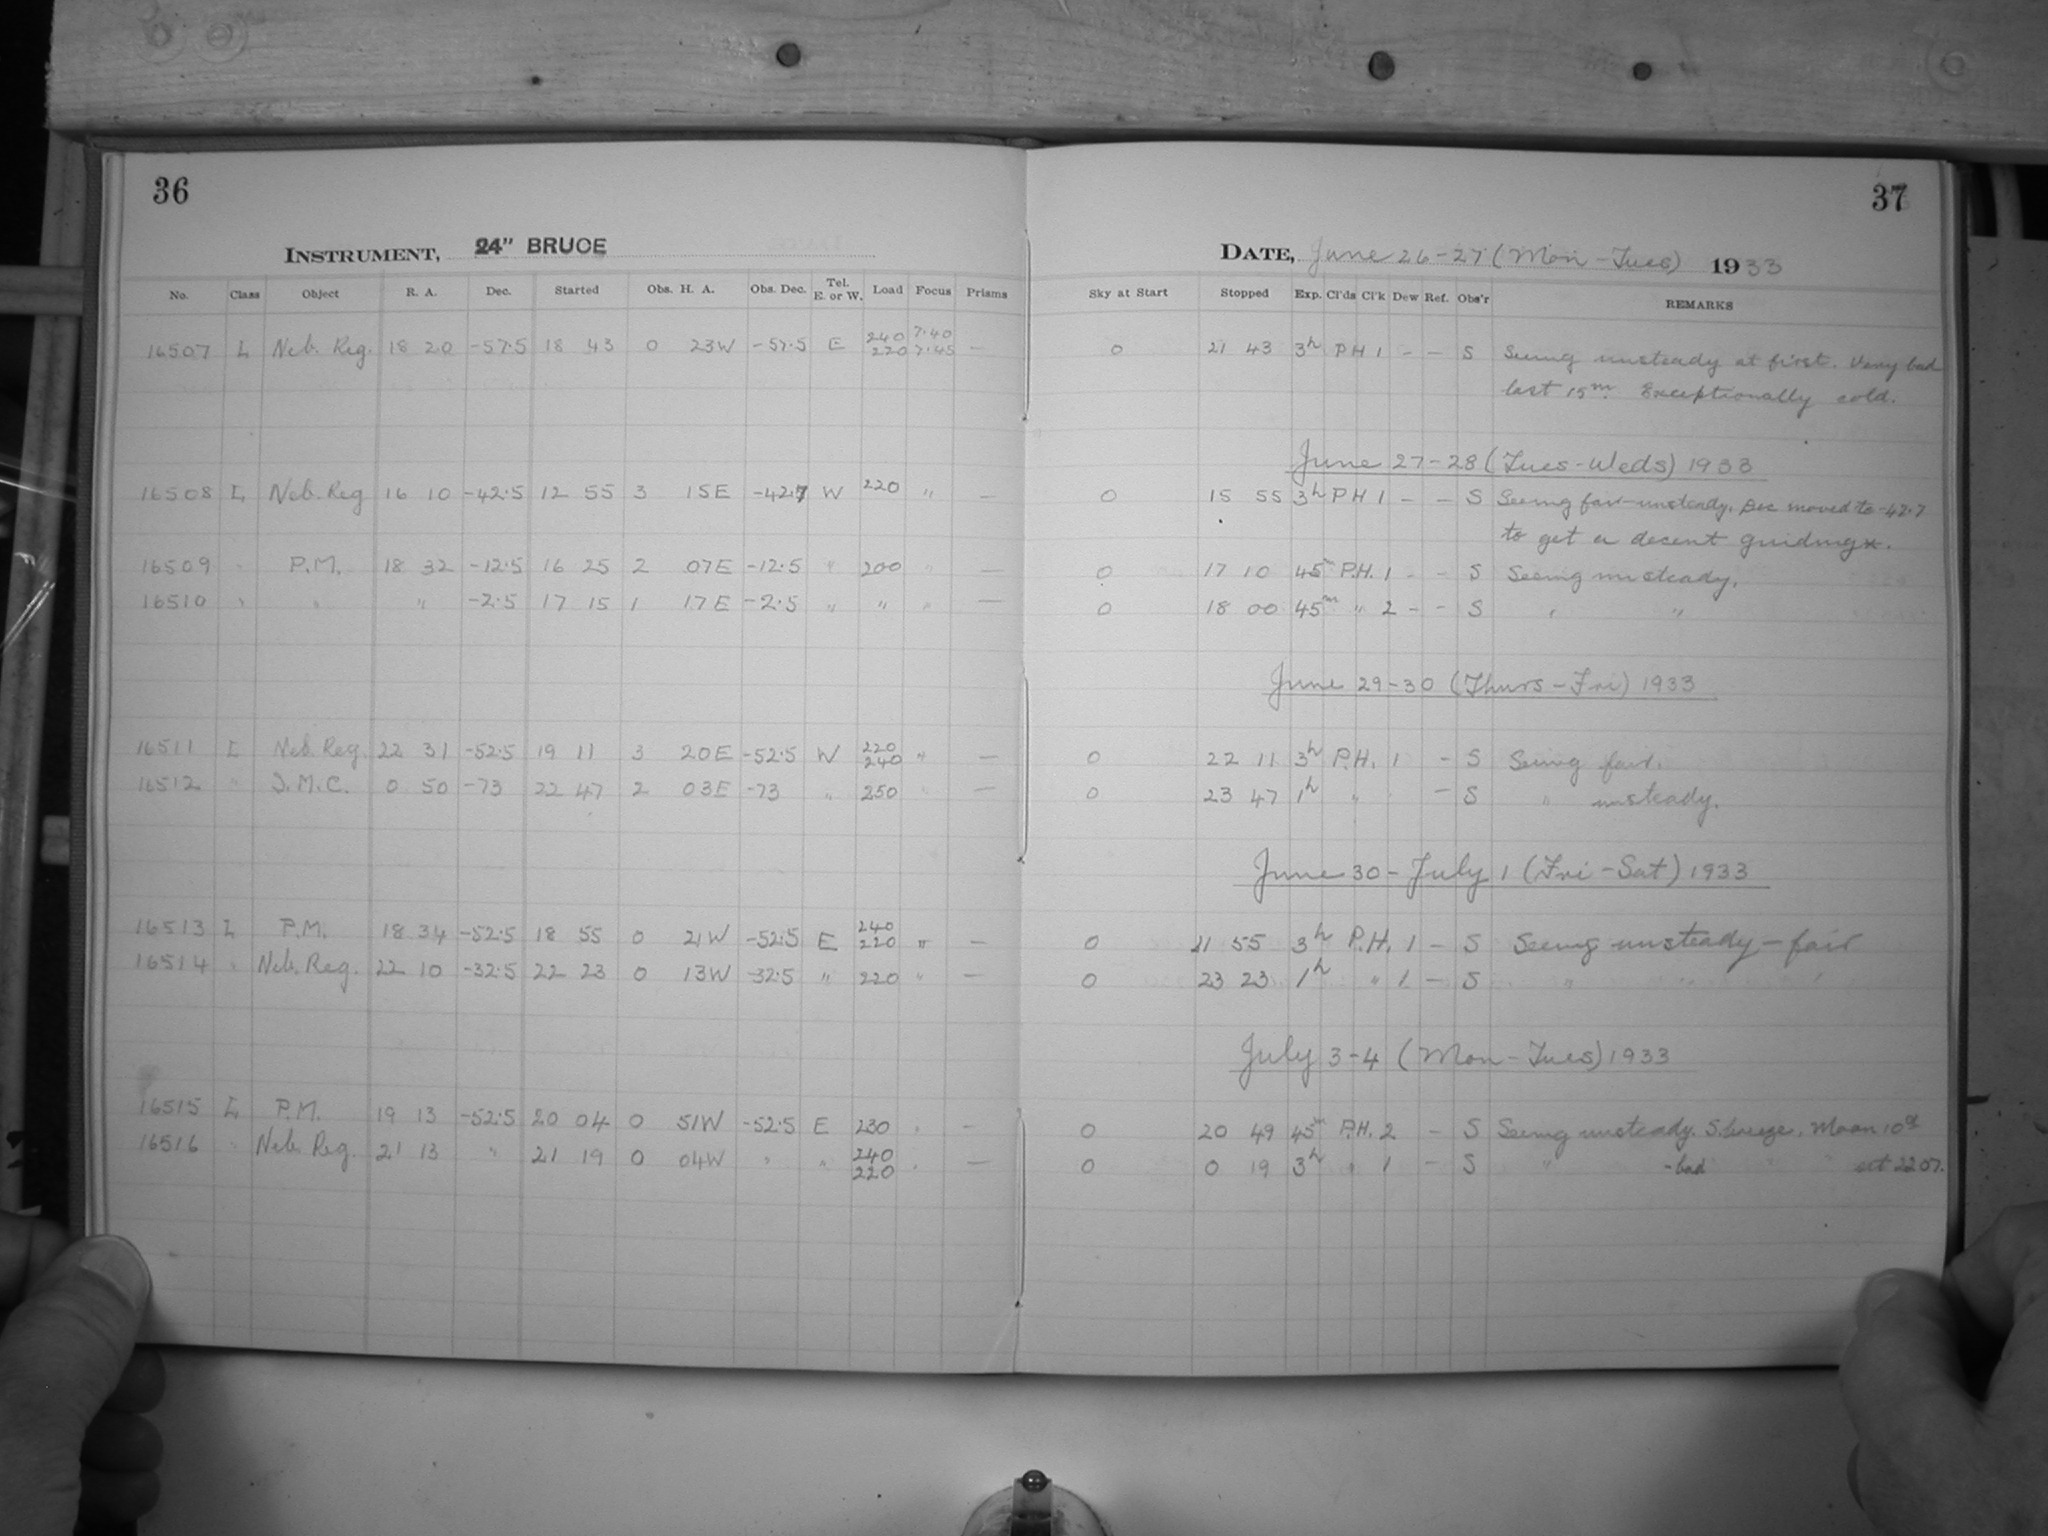 36
37
INSTRUMENT, 24" BRUCE
DATE, June 26-27 (Mon-Tues) 1933
No. Class Object R. A. Dec. Started Obs. H. A. Obs. Dec. Tel. E. or W. Load Focus Prisms Sky at Start Stopped Exp. Cl'ds Cl'k Dew Ref. Obs'r REMARKS
16507 L Neb. Reg. 18 20 -57.5 18 43 0 23W -57.5 E 240 220 7.40 7.45 — 0 21 43 3h P H 1 - - S Seeing unsteady at first. Very bad
last 15m. Exceptionally cold.
June 27-28 (Tues-Weds) 1933
16508 L Neb. Reg 16 10 -42.5 12 55 3 15E -42.7 W 220 " — 0 15 55 3h P H 1 - - S Seeing fair-unsteady. Dec moved to -42.7
to get a decent guiding *.
16509 " P.M. 18 32 -12.5 16 25 2 07E -12.5 " 200 " — 0 17 10 45m P.H. 1 - - S Seeing unsteady.
16510 " " " -2.5 17 15 1 17E -2.5 " " " — 0 18 00 45m " 2 - - S " "
June 29-30 (Thurs-Fri) 1933
16511 L Neb. Reg. 22 31 -52.5 19 11 3 20E -52.5 W 220 240 " — 0 22 11 3h P.H. 1 - S Seeing fair.
16512 " S.M.C. 0 50 -73 22 47 2 03E -73 " 250 " — 0 23 47 1h " - S " unsteady.
June 30 - July 1 (Fri-Sat) 1933
16513 L P.M. 18 34 -52.5 18 55 0 21W -52.5 E 240 220 " — 0 21 55 3h P.H. 1 - S Seeing unsteady - fair
16514 " Neb. Reg. 22 10 -32.5 22 23 0 13W -32.5 " 220 " — 0 23 23 1h " 1 - S " " "
July 3-4 (Mon-Tues) 1933
16515 L P.M. 19 13 -52.5 20 04 0 51W -52.5 E 230 " — 0 20 49 45m P.H. 2 - S Seeing unsteady. S. breeze. Moon 10d
16516 " Neb. Reg. 21 13 " 21 19 0 04W " " 240 220 " — 0 0 19 3h " 1 - S " -bad " " set 22 07.